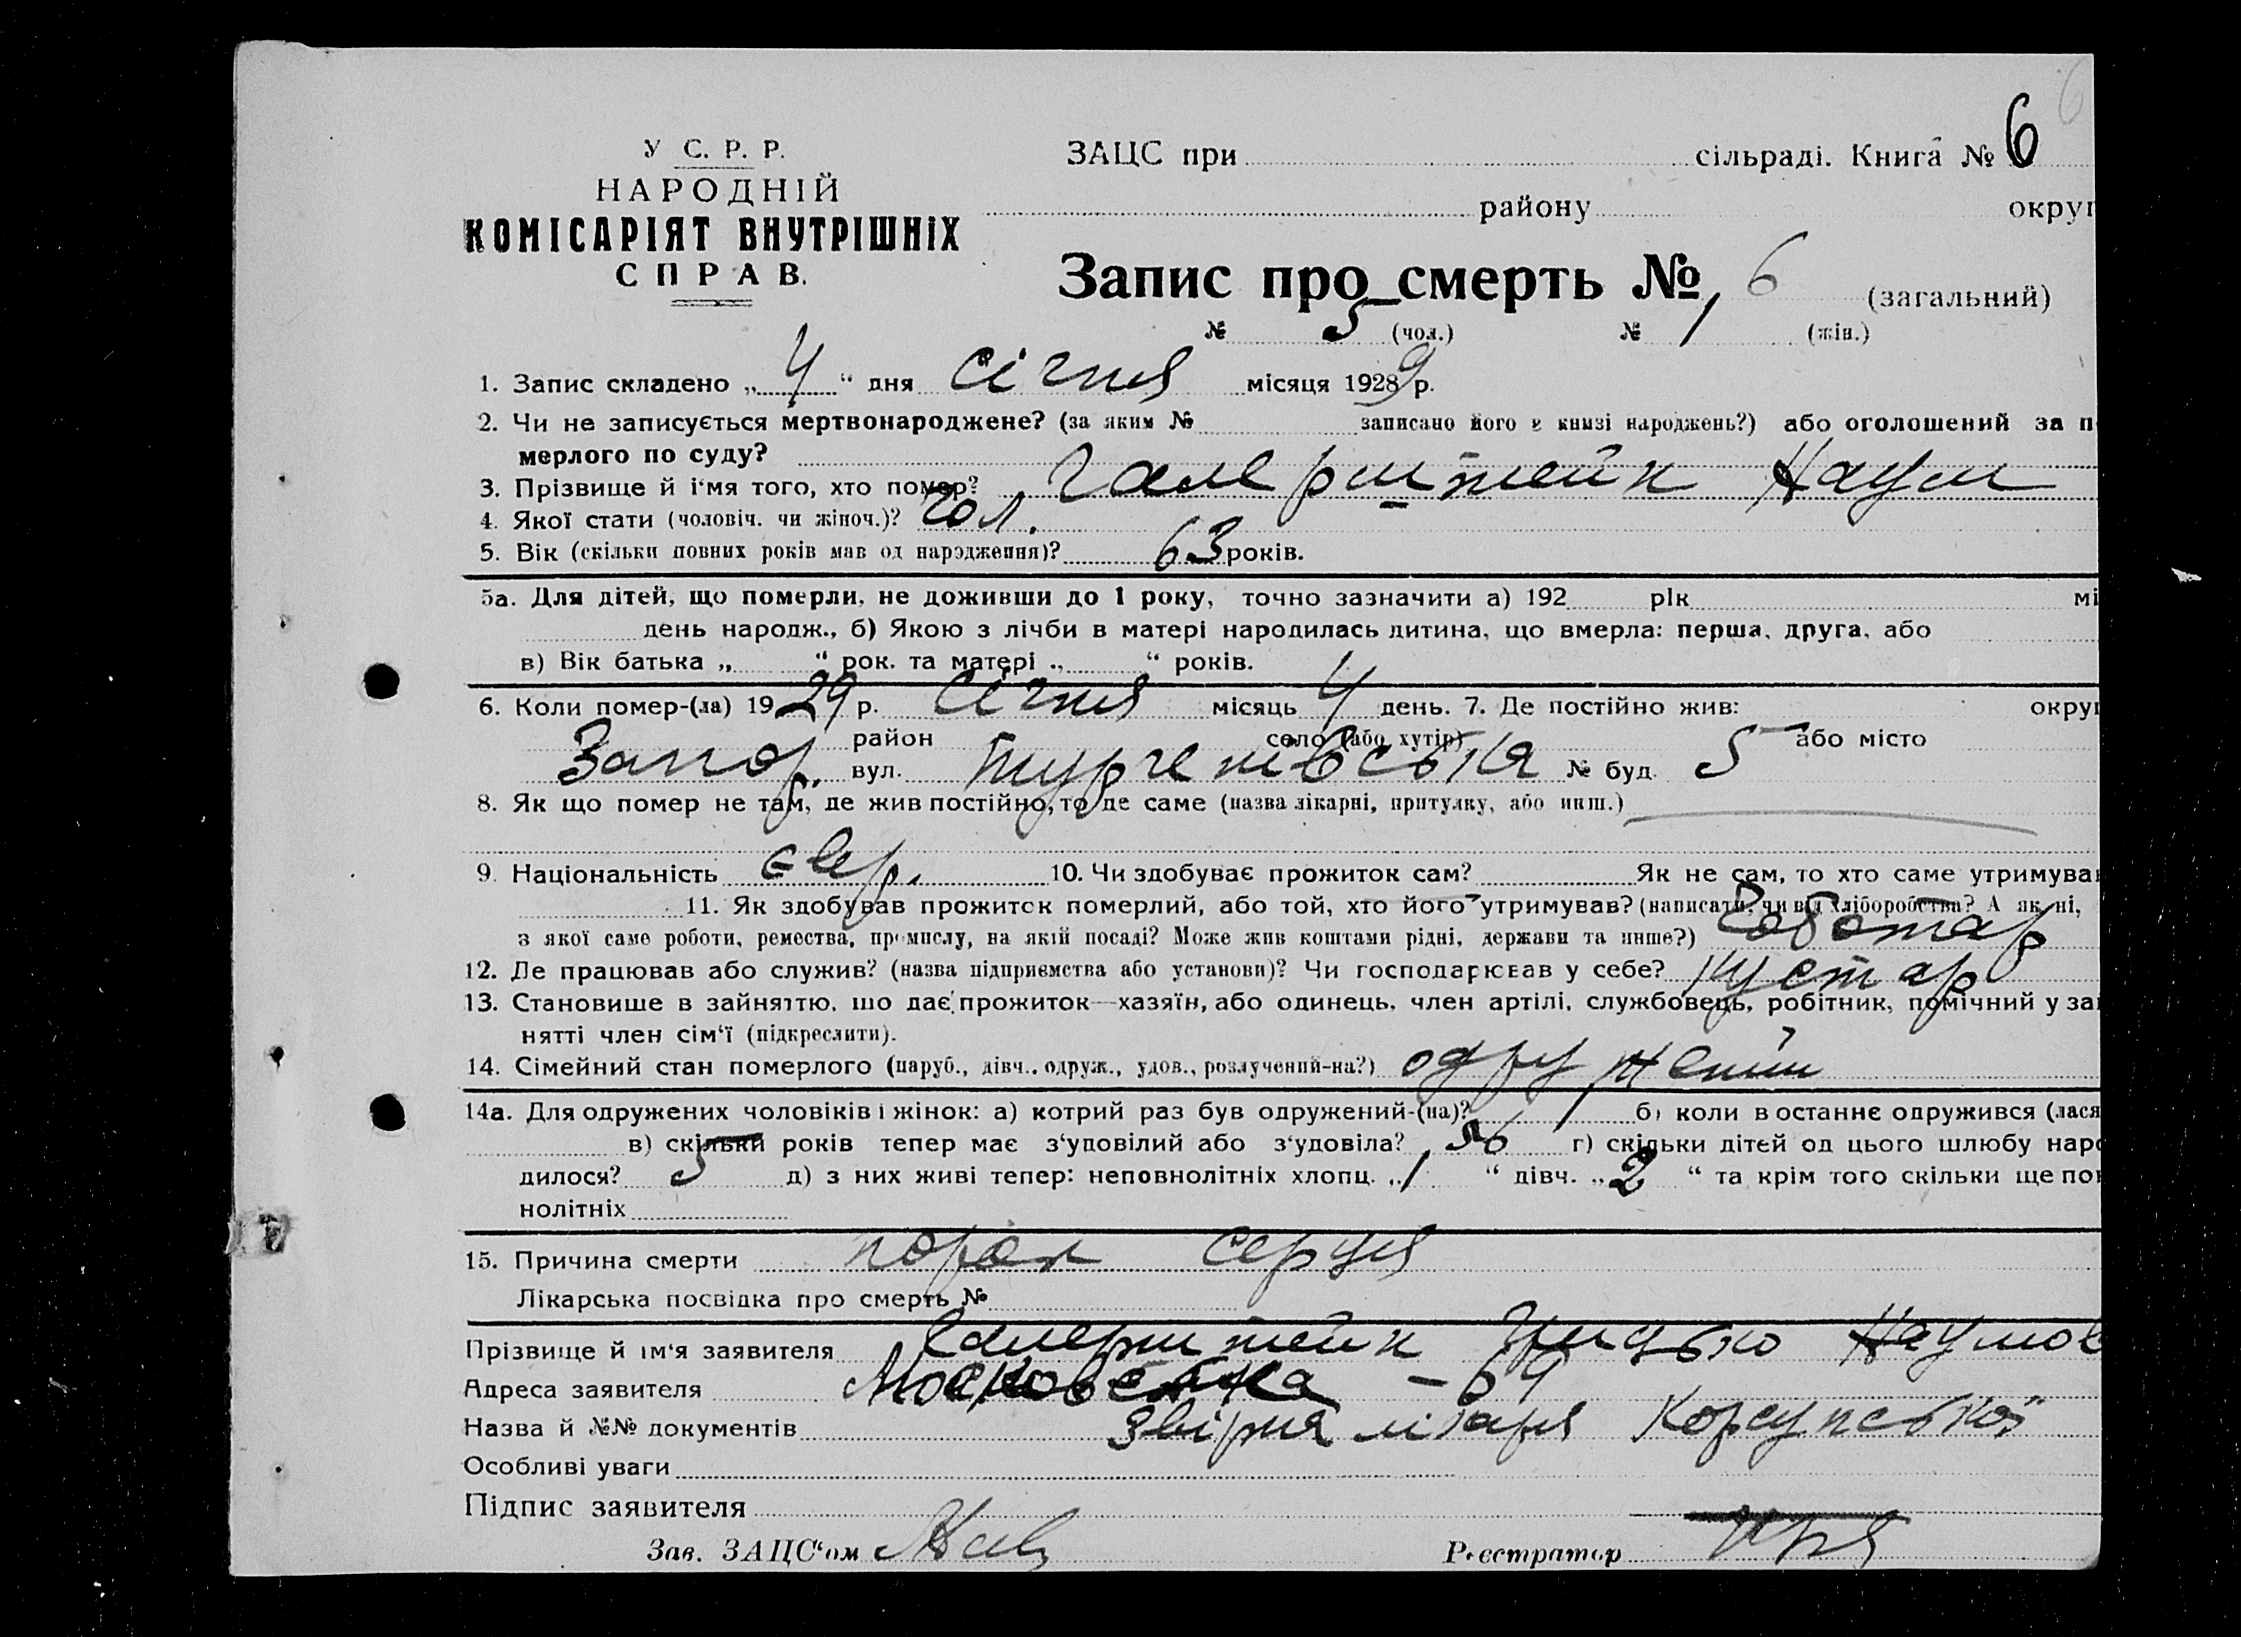 У С. Р. Р.
НАРОДНІЙ
КОМІСАРІЯТ ВНУТРІШНІХ
СПРАВ.
ЗАЦС при сільраді. Книга № 6
району округ
Запис про смерть № 6 (загальний)
№ 5 (чол.) № 1 (жін.)
1. Запис складено „4“ дня січня місяця 1929 р.
2. Чи не записується мертвонароджене? (за яким № записано його в книзі народжень?) або оголошений за п
мерлого по суду?
3. Прізвище й ім'я того, хто помер? Галерштейн Наум
4. Якої стати (чоловіч. чи жіноч.)? чол.
5. Вік (скільки повних років мав од народження)? 63 років.
5а. Для дітей, що померли, не доживши до 1 року, точно зазначити а) 192 рік мі
день народж., б) Якою з лічби в матері народилась дитина, що вмерла: перша, друга, або
в) Вік батька „ “ рок. та матері „ “ років.
6. Коли помер-(ла) 1929 р. січня місяць 4 день. 7. Де постійно жив: окру
район село (або хутір) або місто
Запор. вул. Тургенівська № буд. 5
8. Як що помер не там, де жив постійно, то де саме (назва лікарні, притулку, або инш.)
9. Національність євр. 10. Чи здобував прожиток сам? Як не сам, то хто саме утримував
11. Як здобував прожиток померлий, або той, хто його утримував? (написати, чи від хліборобства? А як ні,
з якої саме роботи, ремества, промислу, на якій посаді? Може жив коштами рідні, держави та инше?) Чоботар
12. Де працював або служив? (назва підприємства або установи)? Чи господарював у себе? кустар
13. Становище в зайняттю, що дає прожиток—хазяїн, або одинець, член артілі, службовець, робітник, помічний у за
нятті член сім'ї (підкреслити).
14. Сімейний стан померлого (паруб., дівч., одруж., удов., розлучений-на?) одружений
14а. Для одружених чоловіків і жінок: а) котрий раз був одружений-(на)? 1 б) коли в останнє одружився (лася
в) скільки років тепер має з'удовілий або з'удовіла? 56 г) скільки дітей од цього шлюбу наро
дилося? 5 д) з них живі тепер: неповнолітніх хлопц. „1“ дівч. „2“ та крім того скільки ще пов
нолітніх
15. Причина смерти порок серця
Лікарська посвідка про смерть №
Прізвище й ім'я заявителя Галерштейн Грицько Наумов
Адреса заявителя Московська - 69
Назва й №№ документів звірня лікаря Корсунської
Особливі уваги
Підпис заявителя
Зав. ЗАЦС'ом Реєстратор